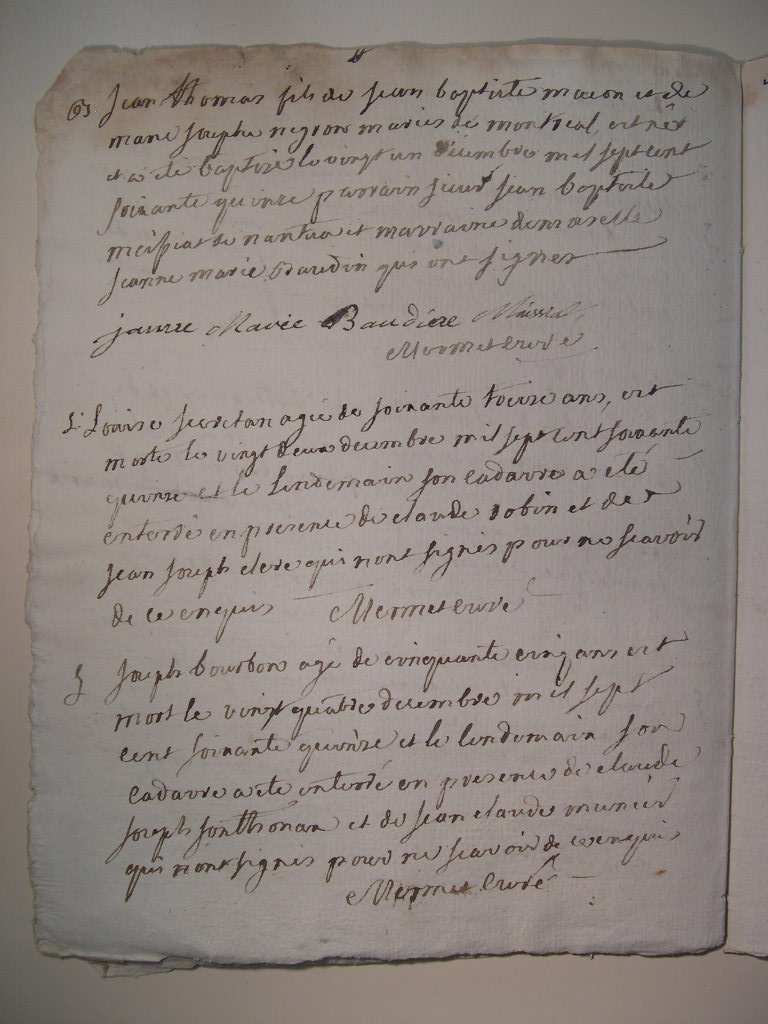 Jean thomas fils de jean baptiste macon et de
marie josephe negron mariés de montreal, est nêt
et a eté baptisé le vingt un decembre mil sept cent
soixante quinze parrain sieur jean baptiste
de nantua et marraine demoiselle
jeanne marie Baudin qui ont signer
Marie Baudiere
Mermet curé
Louise secretan agée de soixante treize ans, est
morte le vingt deux decembre mil sept cent soixante
quinze et le lendemain son cadavre a eté
enterré en presence de claude robin et de
jean joseph clerc qui nont signés pour ne scavoir
de ce enquis Mermet curé
joseph bourbon agé de cinquante cinq ans est
mort le vingt quatre decembre mil sept
cent soixante quinze et le lendemain son
cadavre a eté enterré en presence de claude
joseph jonthonax et de jean claude munier
qui nont signés pour ne scavoir de ce enquis
Mermet curé